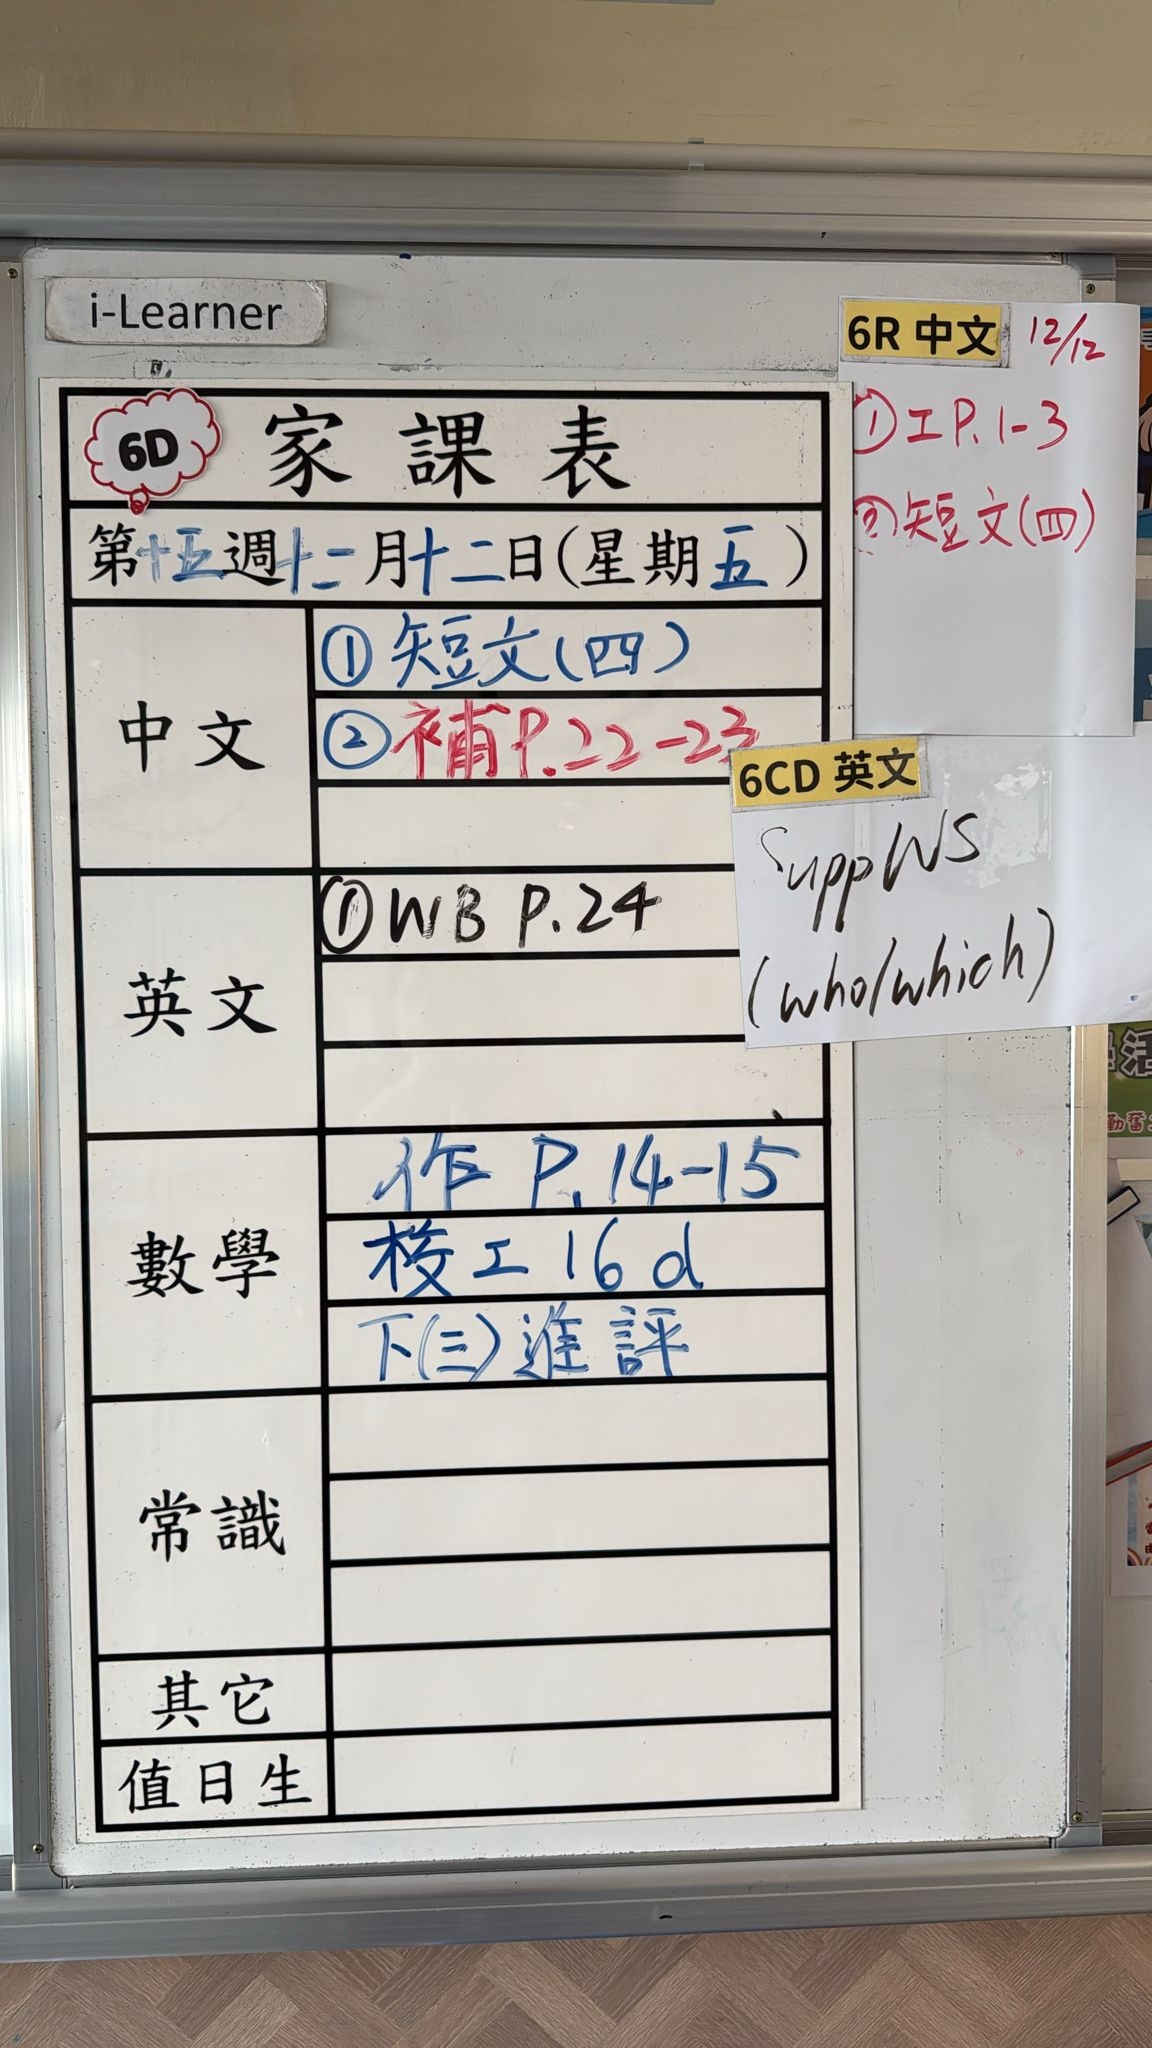 i-Learner
6D 家課表
第十五週十二月十二日(星期五)
中文
①短文(四)
②補P.22-23
英文
①WB P.24
數學
作 P.14-15
校工 16d
下(三)進評
常識
其它
值日生
6R 中文 12/12
①工P.1-3
②短文(四)
6CD 英文
Supp WS
(who/which)
活
勤奮